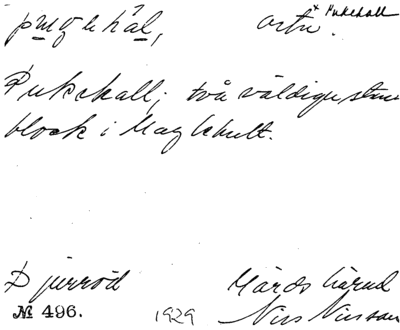 ortn. × Pukehall
Pukehall; två väldiga sten
block i Maglehult.
Djurröd Gärds härad
№ 496. 1929 Nils Nilsson